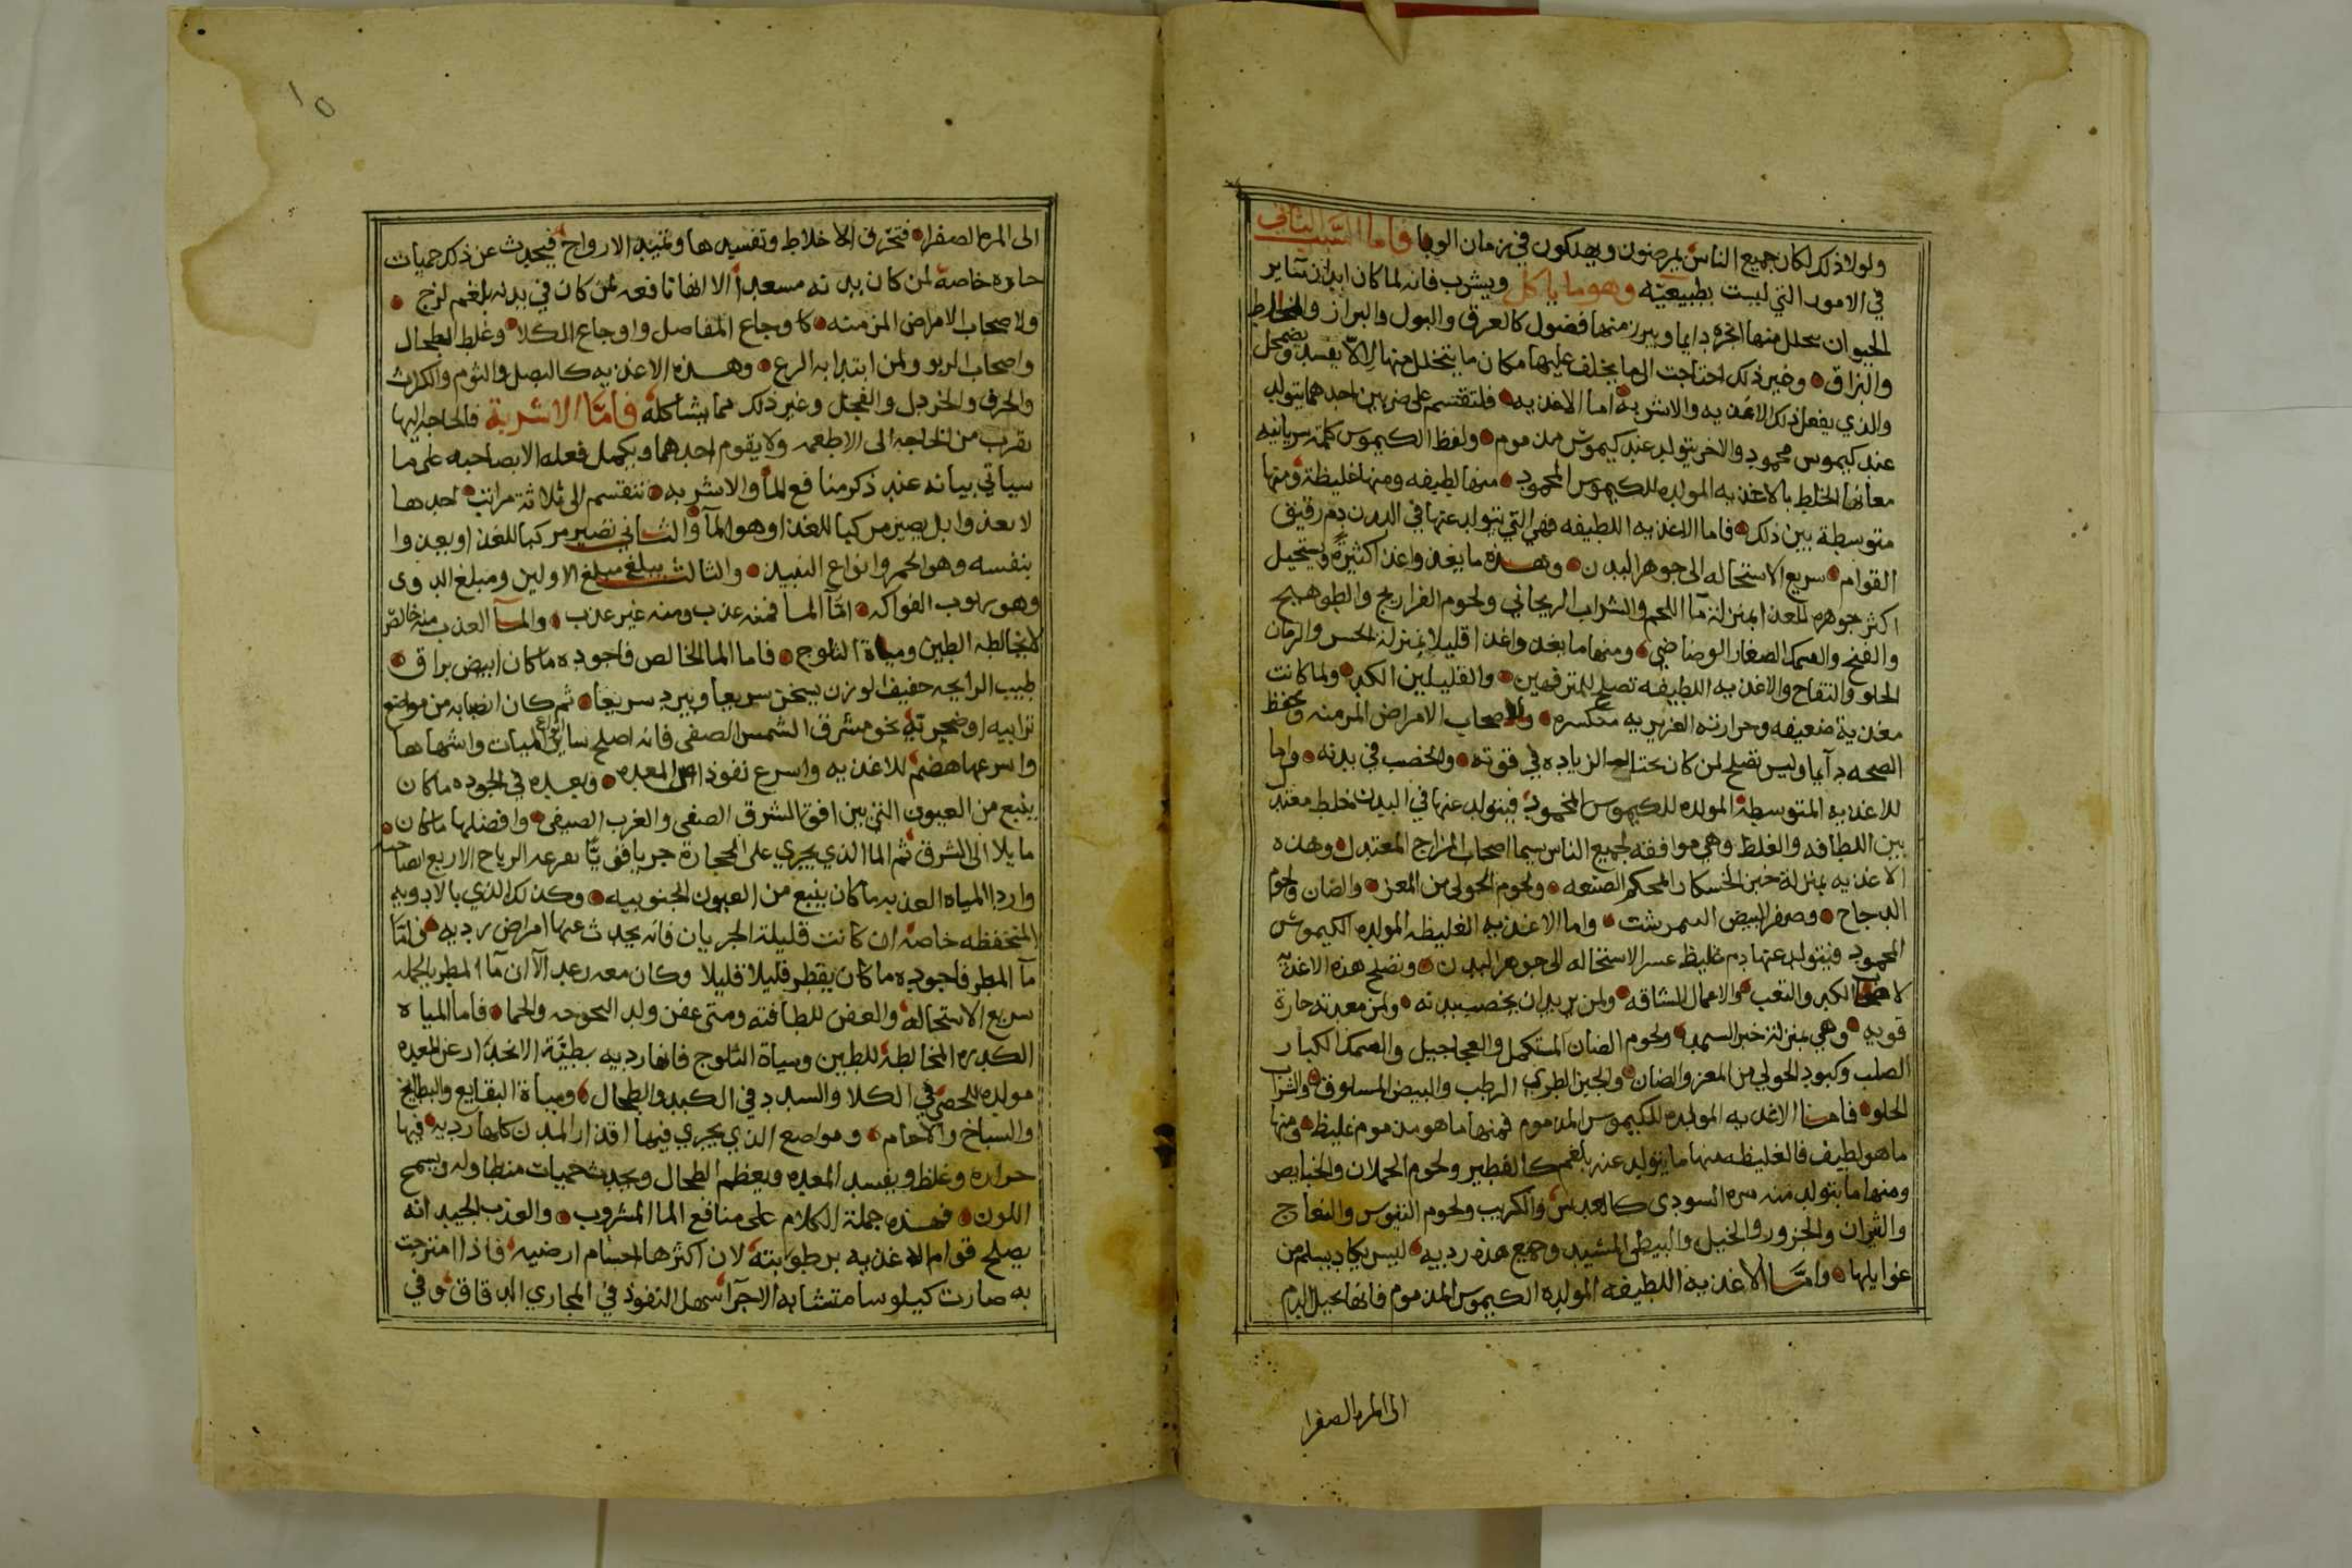 ولولا ذلك لكان جميع الناس يمرضون ويهلكون في زمان الوبا فاما السبب الثاني
في الامور التي ليست بطبيعيه وهو ما ياكل ويشرب فانه لما كان ابدان سائر
الحيوان يتحلل منها ابخره دايما ويبرز منها فضول كالعرق والبول والبراز والمخاط
والبزاق وغير ذلك احتاجت الى ما يخلف عليها مكان ما يتحلل منها لالا يفسد ويضمحل
والذي يفعل ذلك الاغذيه والاشربه اما الاغذيه فلتقتسم على ضربين احدهما يتولد
عنه كيموس محمود والاخر يتولد عنه كيموس مذموم ولفظ الكيموس كلمة سريانيه
معناها الخلط بالاغذيه المولده للكيموس المحمود منها لطيفه ومنها غليظة ومنها
متوسطة بين ذلك فاما الاغذيه اللطيفه فهي التي يتولد عنها في البدن دم رقيق
القوام سريع الاستحاله الى جوهر البدن وهذه ما يغدوا غذا كثيرة ويستحيل
اكثر جوهره للغذا بمنزلة مآ اللحم والشراب الريحاني ولحوم الفراريج والطوهيج
والقبج والسمك الصغار الرضاضي ومنها ما يغدوا غذا قليلا بمنزلة الخس والرمان
الحلو والتفاح والاغذيه اللطيفه تصلح للمترفهين والقليلين الكد ولما كانت
معديه ضعيفه وحرارته الغريزيه منكسره ولاصحاب الامراض المزمنه وتحفظ
الصحه دآيما وليس تصلح لمن كان يحتاج الزياده في قوته والخصب في بدنه واما
للاغذيه المتوسطة المولده للكيموس المحمود فيتولد عنها في البدن خلط معتدل
بين اللطافه والغلظ وهي موافقه لجميع الناس سيما اصحاب المزاج المعتدل وهذه
الاغذيه بمنزلة خبز الخشكار المحكم الصنعه ولحوم الحولي من المعز والضان ولحوم
الدجاج وصفر البيض النيمرشت واما الاغذيه الغليظه المولده الكيموس
المحمود فيتولد عنها دم غليظ عسر الاستحاله الى جوهر البدن وتصلح هذه الاغذيه
الكد والتعب والاعمال الشاقه ولمن يريد ان يخصب بدنه ولمن معدته حارة
قويه وهي بمنزلة خبز السميد ولحوم الضان المستكمل والعجاجيل والسمك الكبار
الصلب وكبود الحولي من المعز والضان والجبن الطري الرطب والبيض المسلوق والشراب
الحلو فامنا الاغذيه المولده للكيموس المذموم فمنها ما هو مذموم غليظ ومنها
ما هو لطيف فالغليظه منها ما يتولد عنه بلغم كالفطير ولحوم الحملان والخبايص
ومنها ما يتولد منه مره السودى كالعدس والكرنب ولحوم التيوس والنعاج
والثيران والجزور والخيل والبيض المشيد وجميع هذه رديه ليس يكاد يسلم من
غوايلها وامتا الاغذيه اللطيفه المولده الكيموس المذموم فانها تحيل الدم
الى المره الصفرا
الى المره الصفرا فتحرق الاخلاط وتفسدها وتثيبه الارواح فيحدث عن ذلك حميات
حاره خاصة لمن كان بدنه مستعدا الا انها نافعه لمن كان في بدنه بلغم لزج
ولاصحاب الامراض المزمنه كاوجاع المفاصل واوجاع الكلا وغلظ الطحال
واصحاب الربو ولمن ابتدا به الربع وهذه الاغذيه كالبصل والثوم والكراث
والحرف والخردل والفجل وغير ذلك مما يشاكله فامتا الاشربة فالحاجه اليها
تقرب من الحاجه الى الاطعمه ولا يقوم احدهما ويكمل فعله الا بصاحبه على ما
سياتي بيانه عند ذكر منافع المآ والاشربه تنقسم الى ثلاثة مراتب احدها
لا يغذوا بل يصير مركبا للغذا وهو المآ والثاني تصير مركبا للغذا ويغدوا
بنفسه وهو الخمر وانواع النبيذ والثالث يبلغ مبلغ الاولين ومبلغ الدوى
وهو ربوب الفواكه امتا الما فمنه عذب ومنه غير عذب والمآ العذب منه خالص
لا يخالطه الطين ومياة الثلوج فاما الما الخالص فاجوده ما كان ابيض براق
طيب الرايحه خفيف الوزن يسخن سريعا ويبرد سريعا ثم كان انصبابه من مواضع
ترابيه او صخريه نحو مشرق الشمس الصفى فانه اصلح ساير انواع المياه واشهاها
واسرعها هضم للاغذيه واسرع نفوذا الى المعده وبعده في الجوده ما كان
ينبع من العيون التي بين افق الشرق الصفى والغرب الصيفى وافضلها ما كان
مايلا الى الشرق ثم الما الذي يجري على الحجارة جريا قويا تقرعه الرياح الاربع
واردا المياه العذبه ما كان ينبع من العيون الجنوبيه وكذلك الذي بالادويه
المنخفظه خاصة ان كانت قليلة الجريان فانه يحدث عنها امراض رديه فامتا
مآ المطر فاجوده ما كان يقطر قليلا قليلا وكان معه رعد الآ ان مآ المطر بالجمله
سريع الاستحاله والعفن للطافته ومتى عفن ولد البحوحه والحما فاما المياه
الكدره المخالطة للطين ومياة الثلوج فانها رديه بطيئة الانحدار عن المعده
مولده للحصى في الكلا والسدد في الكبد والطحال ومياة البقايع والبطايح
والسباخ والاجام ومواضع الذي يجري فيها اقذار المدن كلها رديه فيها
حراره وغلظ ويفسد المعده ويعظم الطحال ويحدث حميات متطاوله ويسمج
اللون فهذه جملة الكلام على منافع الما المشروب والعذب الجيد انه
يصلح قوام الاغذيه برطوبته لان اكثرها اجسام ارضيه فاذا امتزجت
به صارت كيلوسا متشابه الاجزآ سهل النفوذ في المجاري الدقاق وفي